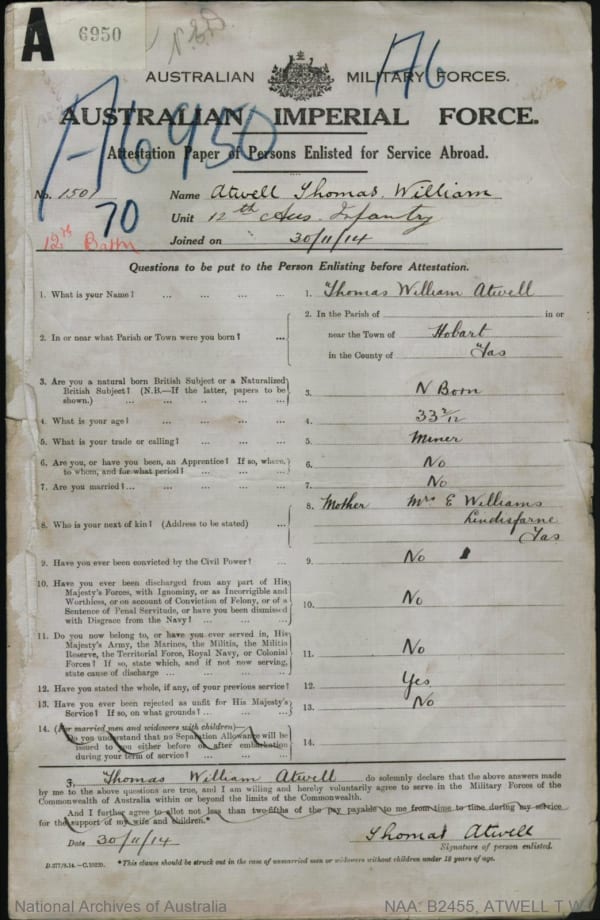 A
6950
N.E.D.
A6
AUSTRALIAN MILITARY FORCES.
AUSTRALIAN IMPERIAL FORCE.
A6950
Attestation Paper of Persons Enlisted for Service Abroad.
No. 1501
Name Atwell Thomas William
70
Unit 12th Aus. Infantry
12th Battn
Joined on 30/11/14
Questions to be put to the Person Enlisting before Attestation.
1. What is your Name? ... ... ... ... 1. Thomas William Atwell
2. In or near what Parish or Town were you born? ... 2. In the Parish of in or
near the Town of Hobart
in the County of Tas
3. Are you a natural born British Subject or a Naturalized
British Subject? (N.B.—If the latter, papers to be
shown.) ... ... ... ... ... 3. N Born
4. What is your age? ... ... ... ... 4. 33 2/12
5. What is your trade or calling? ... ... ... 5. Miner
6. Are you, or have you been, an Apprentice? If so, where,
to whom, and for what period? ... ... ... 6. No
7. Are you married? ... ... ... ... ... 7. No
8. Who is your next of kin? (Address to be stated) ... 8. Mother Mrs E Williams
Lindisfarne
Tas
9. Have you ever been convicted by the Civil Power? ... 9. No
10. Have you ever been discharged from any part of His
Majesty's Forces, with Ignominy, or as Incorrigible and
Worthless, or on account of Conviction of Felony, or of a
Sentence of Penal Servitude, or have you been dismissed
with Disgrace from the Navy? ... ... ... 10. No
11. Do you now belong to, or have you ever served in, His
Majesty's Army, the Marines, the Militia, the Militia
Reserve, the Territorial Force, Royal Navy, or Colonial
Forces? If so, state which, and if not now serving,
state cause of discharge ... ... ... ... 11. No
12. Have you stated the whole, if any, of your previous service? 12. Yes
13. Have you ever been rejected as unfit for His Majesty's
Service? If so, on what grounds? ... ... ... 13. No
14. (For married men and widowers with children)—
Do you understand that no Separation Allowance will be
issued to you either before or after embarkation
during your term of service? ... ... ... 14.
I, Thomas William Atwell do solemnly declare that the above answers made
by me to the above questions are true, and I am willing and hereby voluntarily agree to serve in the Military Forces of the
Commonwealth of Australia within or beyond the limits of the Commonwealth.
And I further agree to allot not less than two-fifths of the pay payable to me from time to time during my service
for the support of my wife and children.*
Date 30/11/14
Thomas Atwell
Signature of person enlisted.
D.377/9.14.—C.10220.
*This clause should be struck out in the case of unmarried men or widowers without children under 18 years of age.
National Archives of Australia
NAA: B2455, ATWELL T W